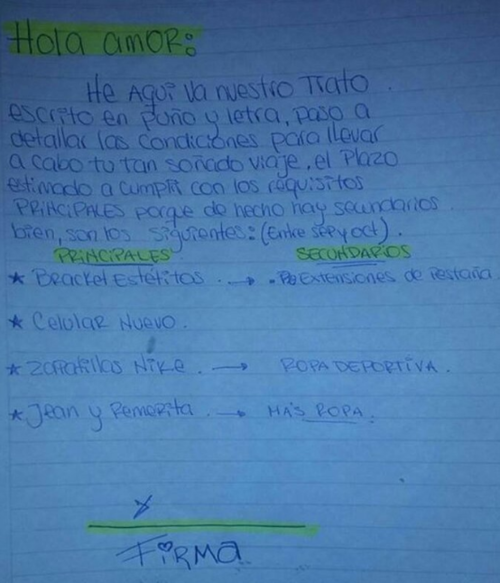 Hola amor:
He Aquí va nuestro Trato
escrito en puño y letra, paso a
detallar las condiciones para llevar
a cabo tu tan soñado viaje, el Plazo
estimado a cumplir con los requisitos
PRINCIPALES porque de hecho hay secundarios
bien, son los siguientes: (Entre sep y oct).
PRINCIPALES SECUNDARIOS
* Bracket Estétitos → Extensiones de Pestaña
* Celular Nuevo.
* Zapatillas Nike. → ROPA DEPORTIVA.
* Jean y Remerita. → MÁS ROPA.
x
Firma